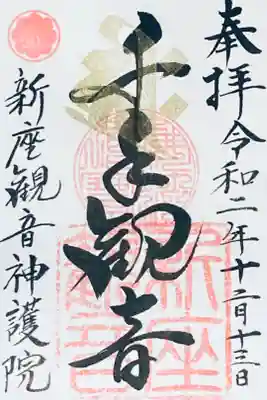 奉拝 令和二年十二月十三日
千手観音
新座観音神護院
新座
観音